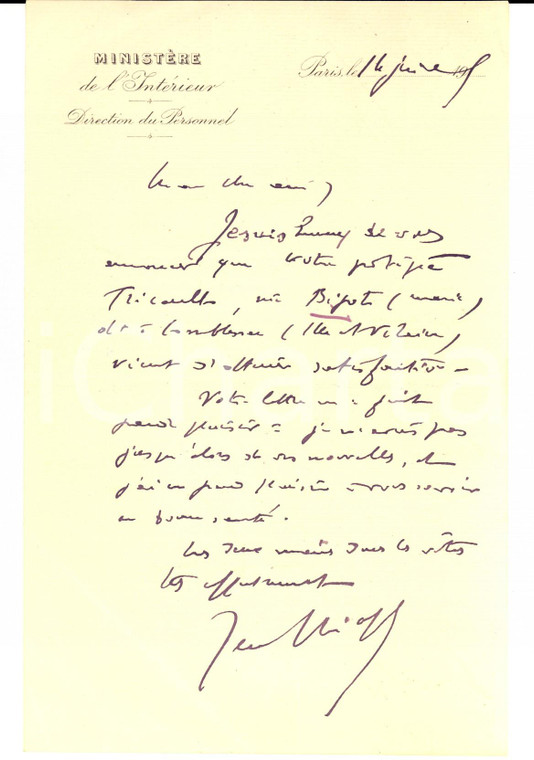 MINISTÈRE
de l'Intérieur
Direction du Personnel
Paris, le 14 19
Mon cher ami,
Je suis heureux de vous
annoncer que votre protégée
née Bigot (Marie)
(Ille et Vilaine)
vient d'obtenir satisfaction -
Votre lettre m'a fait
grand plaisir - je n'avais pas
jusqu'alors de vos nouvelles, et
j'ai un grand plaisir à vous savoir
en bonne santé.
Les deux mains dans les vôtres
très affectueusement